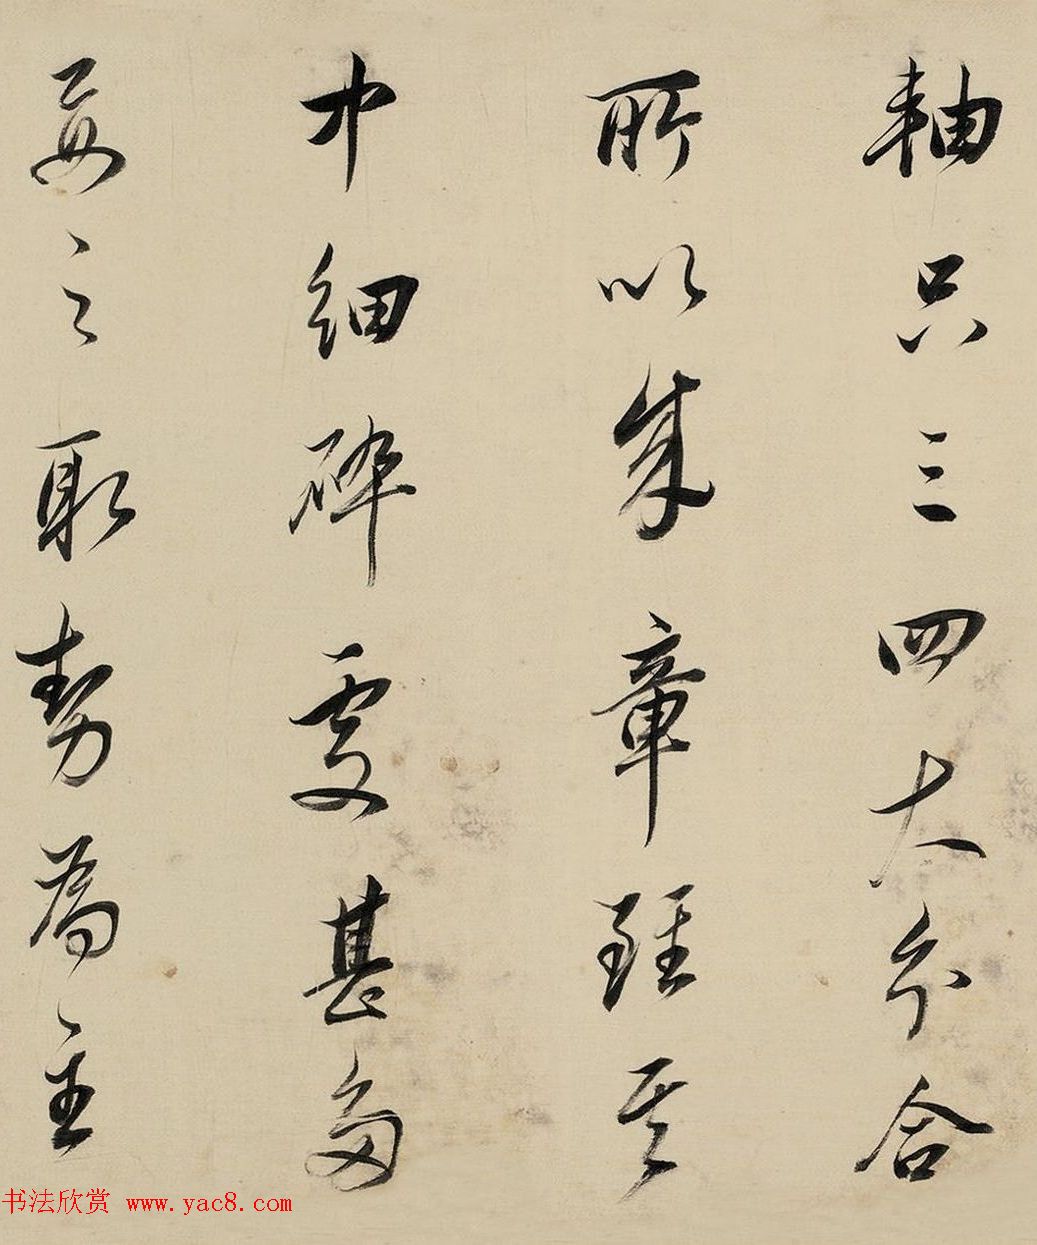 軸只三四大分合
所以成章雖其
中細碎處甚多
要之取勢為主
书法欣赏 www.yac8.com